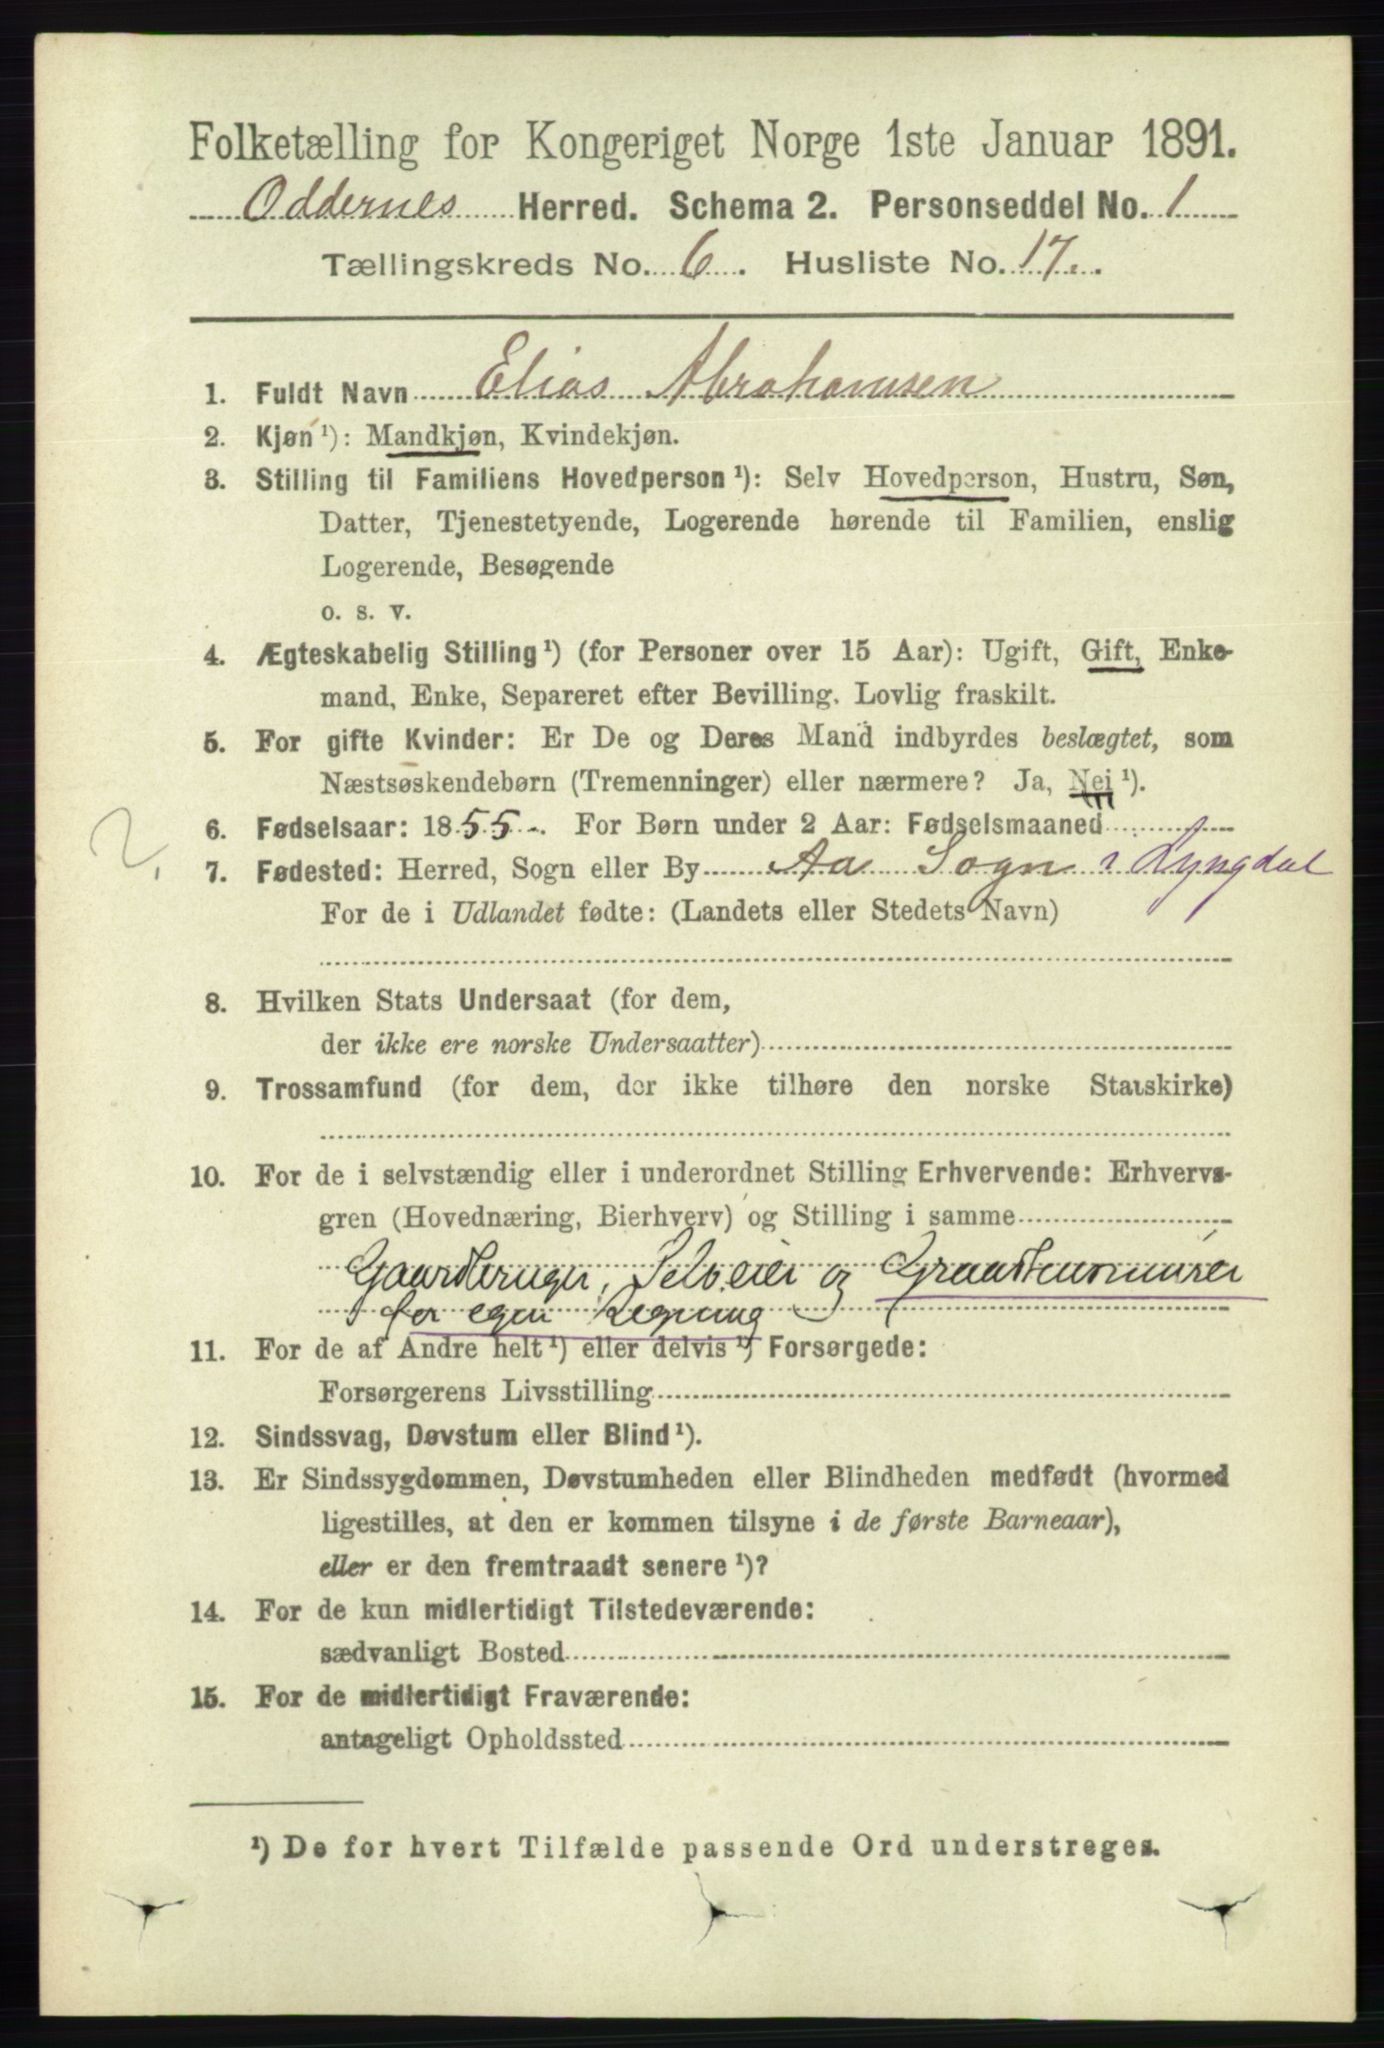 Folketælling for Kongeriget Norge 1ste Januar 1891.
Oddernes Herred. Schema 2. Personseddel No. 1
Tællingskreds No. 6. Husliste No. 17.
1. Fuldt Navn Elias Abrahamsen
2. Kjøn¹): Mandkjøn, Kvindekjøn.
3. Stilling til Familiens Hovedperson¹): Selv Hovedperson, Hustru, Søn,
Datter, Tjenestetyende, Logerende hørende til Familien, enslig
Logerende, Besøgende
o. s. v.
4. Ægteskabelig Stilling¹) (for Personer over 15 Aar): Ugift, Gift, Enke-
mand, Enke, Separeret efter Bevilling. Lovlig fraskilt.
5. For gifte Kvinder: Er De og Deres Mand indbyrdes beslægtet, som
Næstsøskendebørn (Tremenninger) eller nærmere? Ja, Nei¹).
6. Fødselsaar: 1855. For Børn under 2 Aar: Fødselsmaaned
2.
7. Fødested: Herred, Sogn eller By Aa Sogn i Lyngdal
For de i Udlandet fødte: (Landets eller Stedets Navn)
8. Hvilken Stats Undersaat (for dem,
der ikke ere norske Undersaatter)
9. Trossamfund (for dem, der ikke tilhøre den norske Statskirke)
10. For de i selvstændig eller i underordnet Stilling Erhvervende: Erhvervs-
gren (Hovednæring, Bierhverv) og Stilling i samme
Gaardbruger, Selveier og Graastensmurer
for egen Regning
11. For de af Andre helt¹) eller delvis¹) Forsørgede:
Forsørgerens Livsstilling
12. Sindssvag, Døvstum eller Blind¹).
13. Er Sindssygdommen, Døvstumheden eller Blindheden medfødt (hvormed
ligestilles, at den er kommen tilsyne i de første Barneaar),
eller er den fremtraadt senere¹)?
14. For de kun midlertidigt Tilstedeværende:
sædvanligt Bosted
15. For de midlertidigt Fraværende:
antageligt Opholdssted
¹) De for hvert Tilfælde passende Ord understreges.